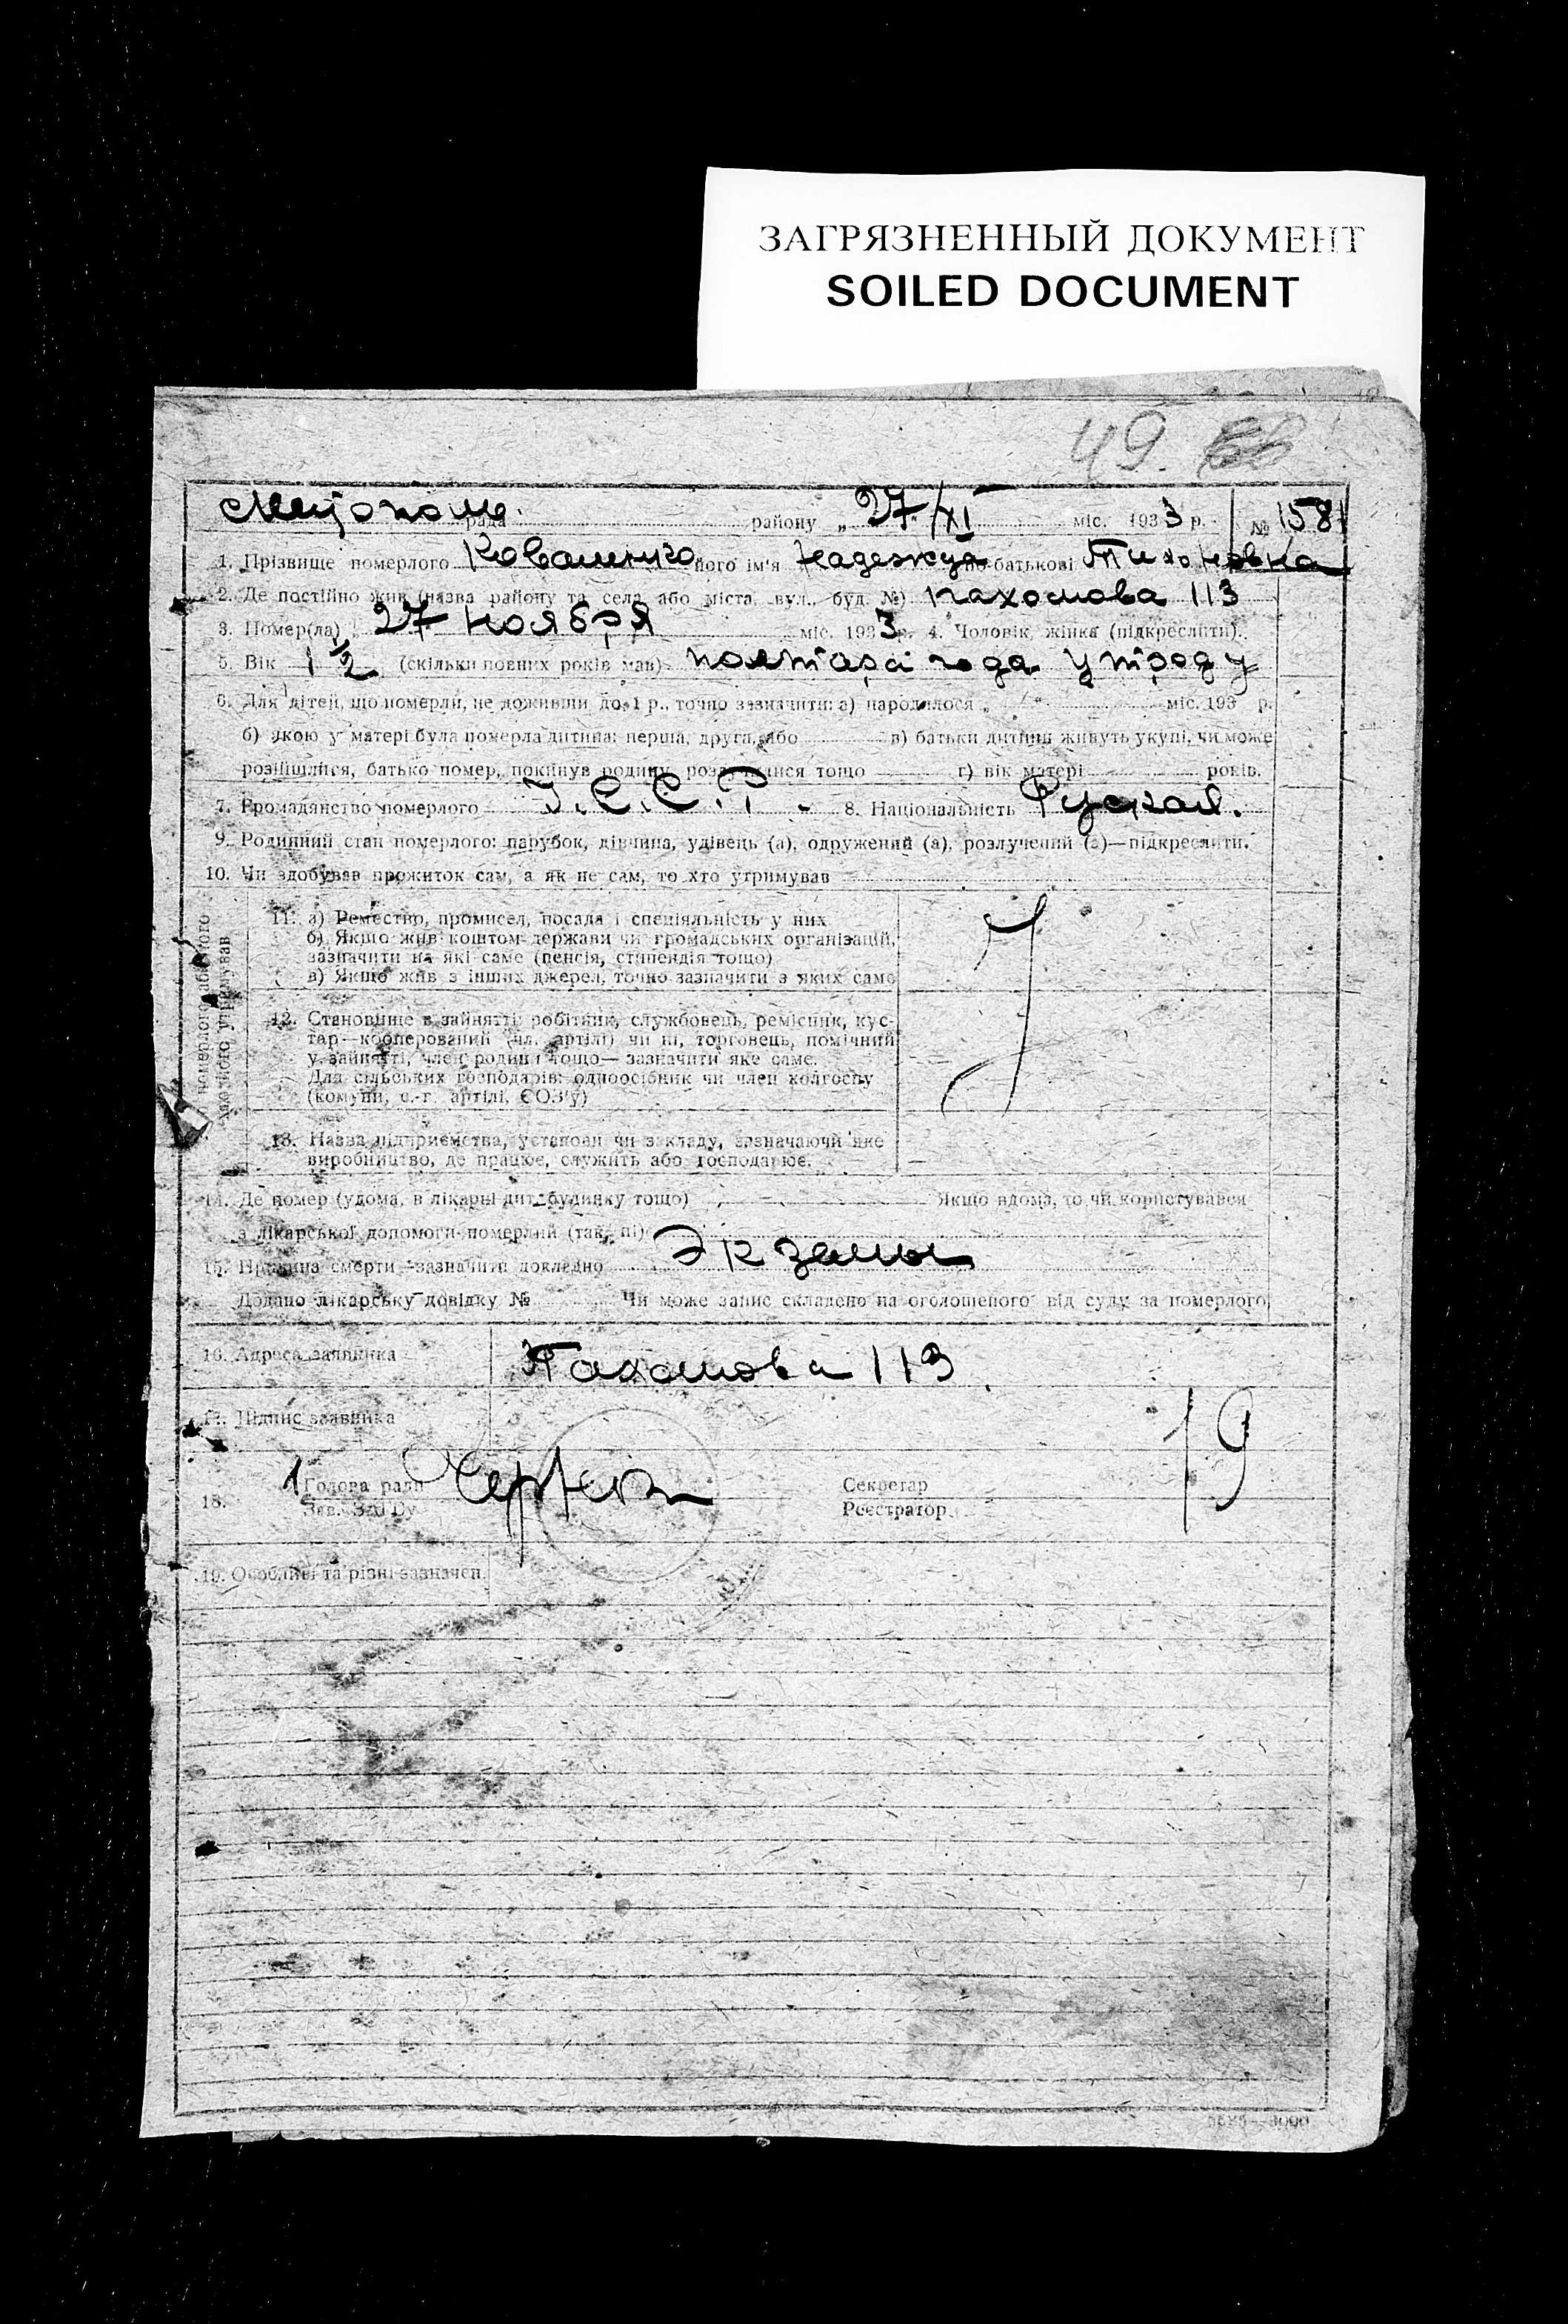 ЗАГРЯЗНЕННЫЙ ДОКУМЕНТ
SOILED DOCUMENT
49.
рада району „27/XI міс. 1933 р. № 158
1. Прізвище померлого його ім'я Надежда по-батькові Тихоновна
2. Де постійно жив (назва району та села або міста, вул., буд. №) пахомова 113
3. Помер(ла) „27 ноября міс. 1933 р. 4. Чоловік, жінка (підкреслити).
5. Вік 1 1/2 (скільки повних років мав) полтара года
6. Для дітей, що померли, не доживши до 1 р., точно зазначити: а) народилося „ “ міс. 193 р.
б) якою у матері була померла дитина: перша, друга, або в) батьки дитини живуть укупі, чи може
розійшлися, батько помер, покинув родину, розлучилися тощо г) вік матері років.
7. Громадянство померлого У.С.С.Р. 8. Національність Руская.
9. Родинний стан померлого: парубок, дівчина, удівець (а), одружений (а), розлучений (а)—підкреслити.
10. Чи здобував прожиток сам, а як не сам, то хто утримував
померлого або того
хто його утримував
11. а) Ремество, промисел, посада і спеціяльність у них
б) Якщо жив коштом держави чи громадських організацій,
зазначити на які саме (пенсія, стипендія тощо)
в) Якщо жив з інших джерел, точно зазначити з яких саме
12. Становище в зайнятті: робітник, службовець, ремісник, кус-
тар—кооперований (чл. артілі) чи ні, торговець, помічний
у зайнятті, член родини тощо—зазначити яке саме.
Для сільських господарів: одноосібник чи член колгоспу
(комуни, с.-г. артілі, СОЗ'у)
13. Назва підприємства, установи чи закладу, зазначаючи яке
виробництво, де працює, служить або господарює.
14. Де помер (удома, в лікарні, дит. будинку тощо) Якщо вдома, то чи користувався
з лікарської допомоги померлий (так, ні)
15. Причина смерти—зазначити докладно Экземы
Додано лікарську довідку № Чи може запис складено на оголошеного від суду за померлого
16. Адреса заявника Пахомова 113
17. Підпис заявника
18. Голова ради Секретар
Зав. ЗАГСу Реєстратор
19. Особливі та різні зазначен.